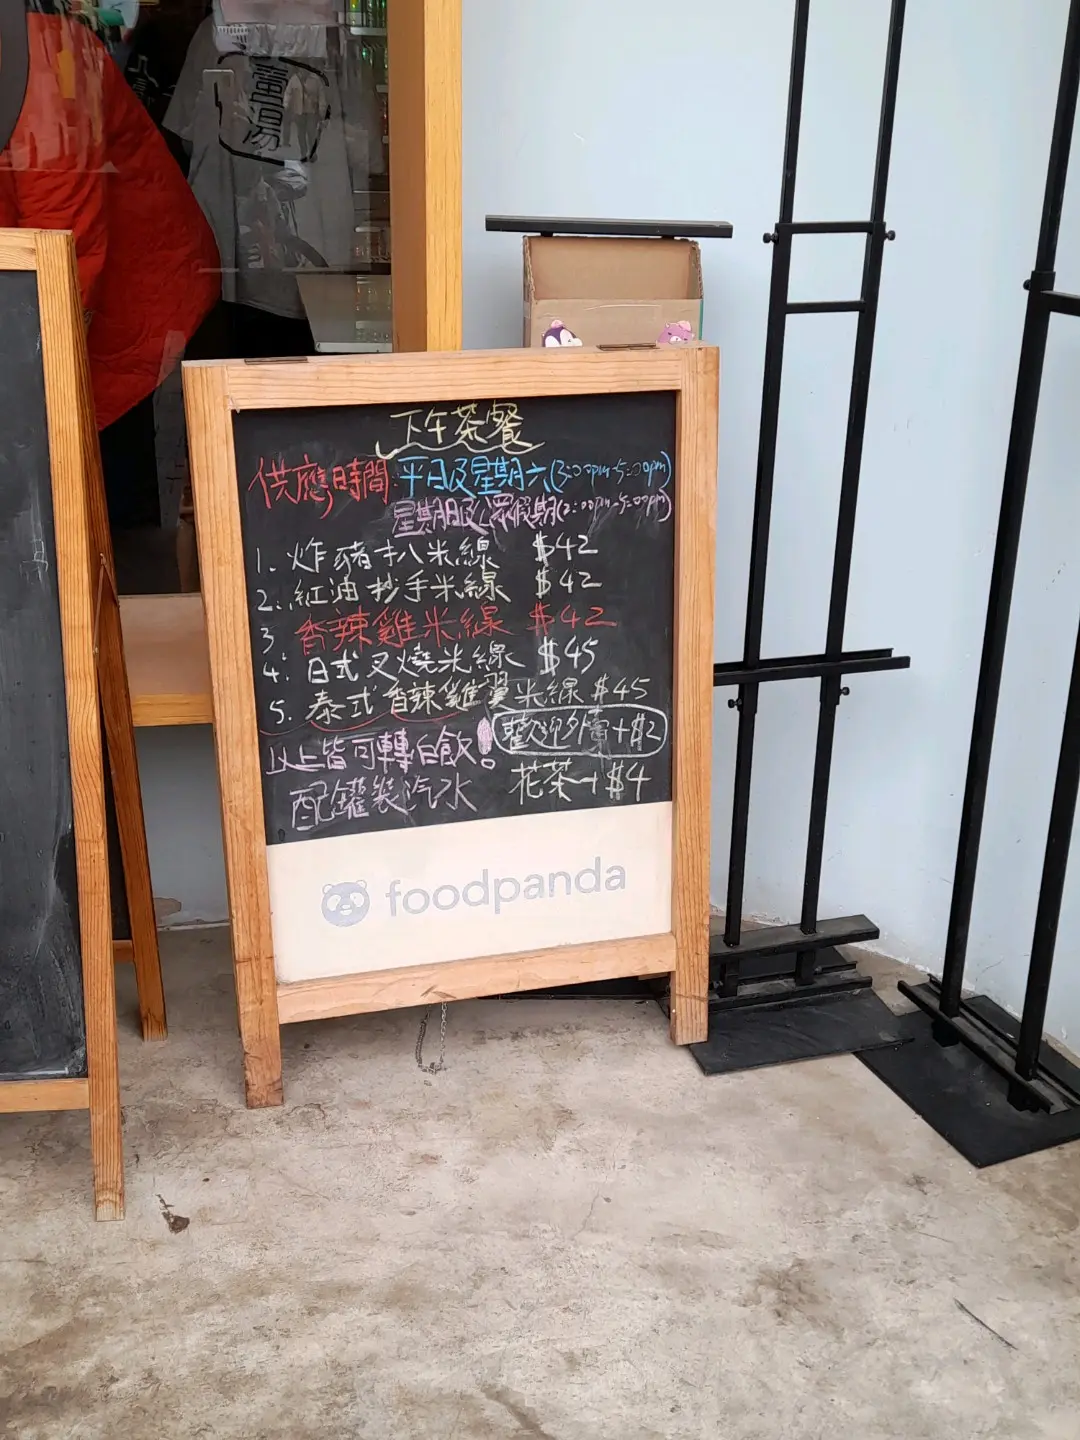 壹湯
下午茶餐
供應時間:平日及星期六(3:00pm-5:00pm)
星期日及公眾假期(2:00pm-5:00pm)
1. 炸豬扒米線 $42
2. 紅油抄手米線 $42
3. 香辣雞米線 $42
4. 日式叉燒米線 $45
5. 泰式香辣雞翼米線 $45
以上皆可轉白飯! 歡迎外賣+$2
配罐裝汽水 花茶+$4
foodpanda